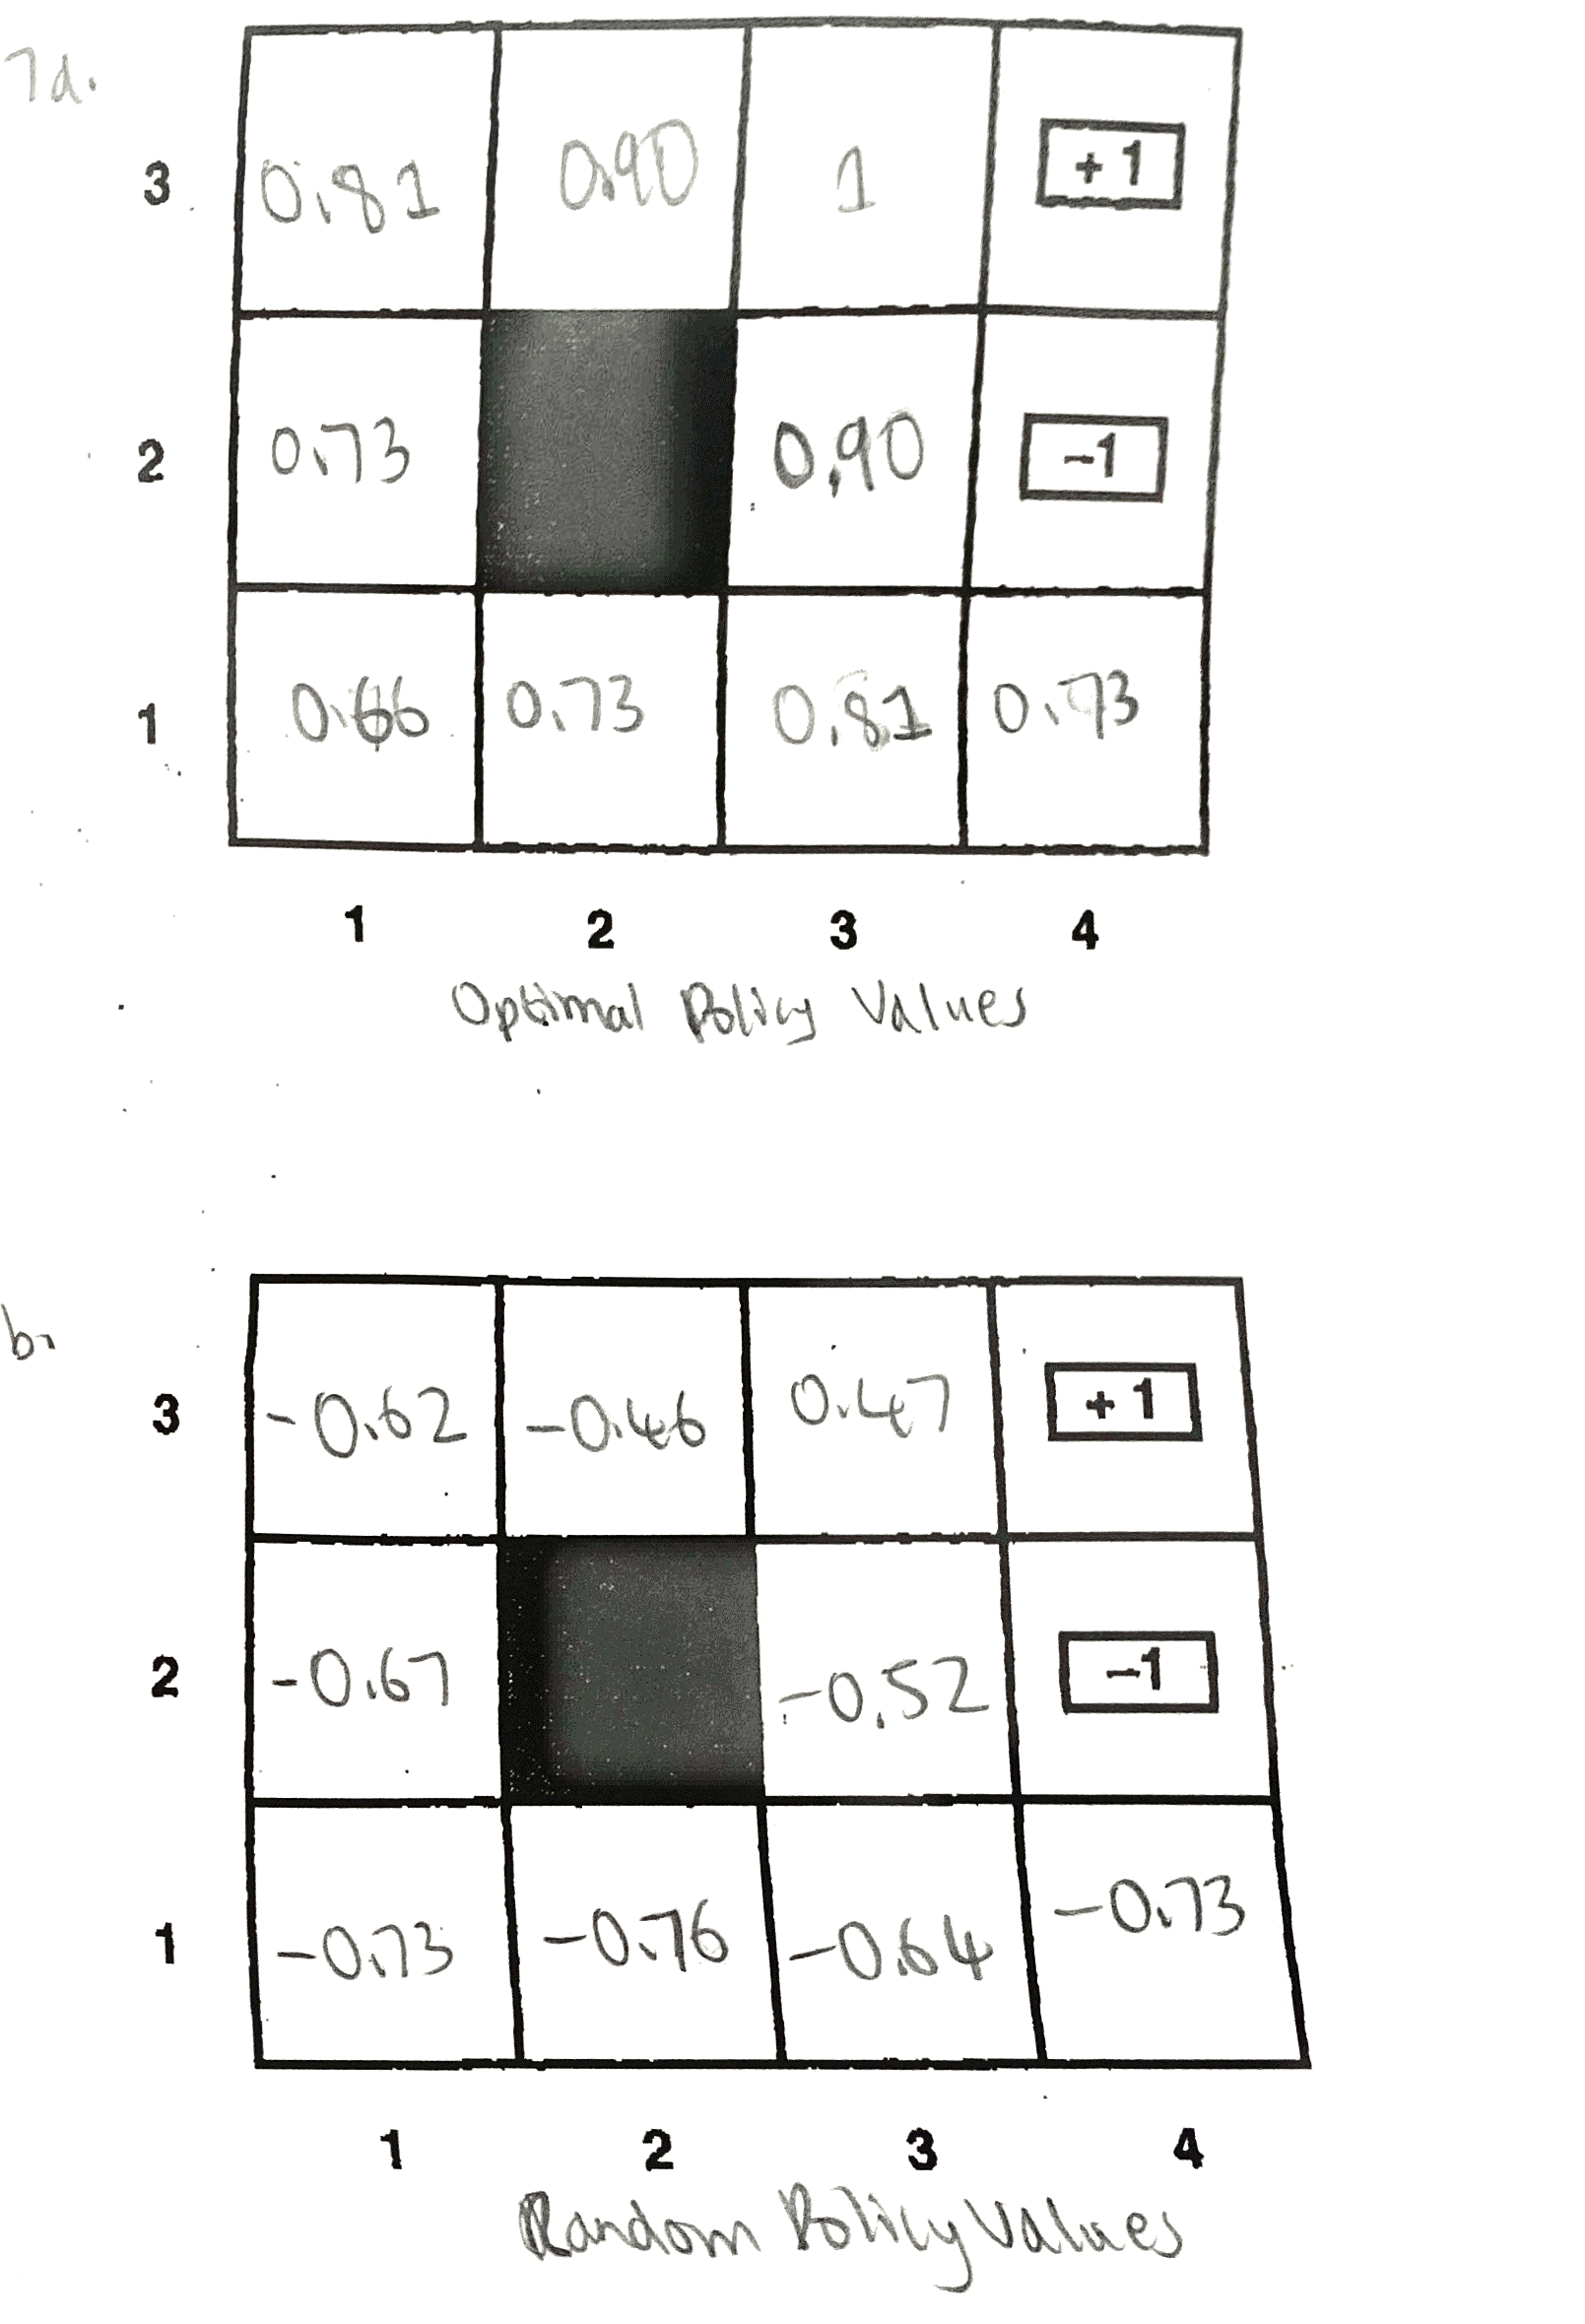 7a.
3 0.81 0.90 1 +1
2 0.73 0.90 -1
1 0.66 0.73 0.81 0.73
1 2 3 4
Optimal Policy Values
b.
3 -0.62 -0.46 0.47 +1
2 -0.67 -0.52 -1
1 -0.73 -0.76 -0.64 -0.73
1 2 3 4
Random Policy Values